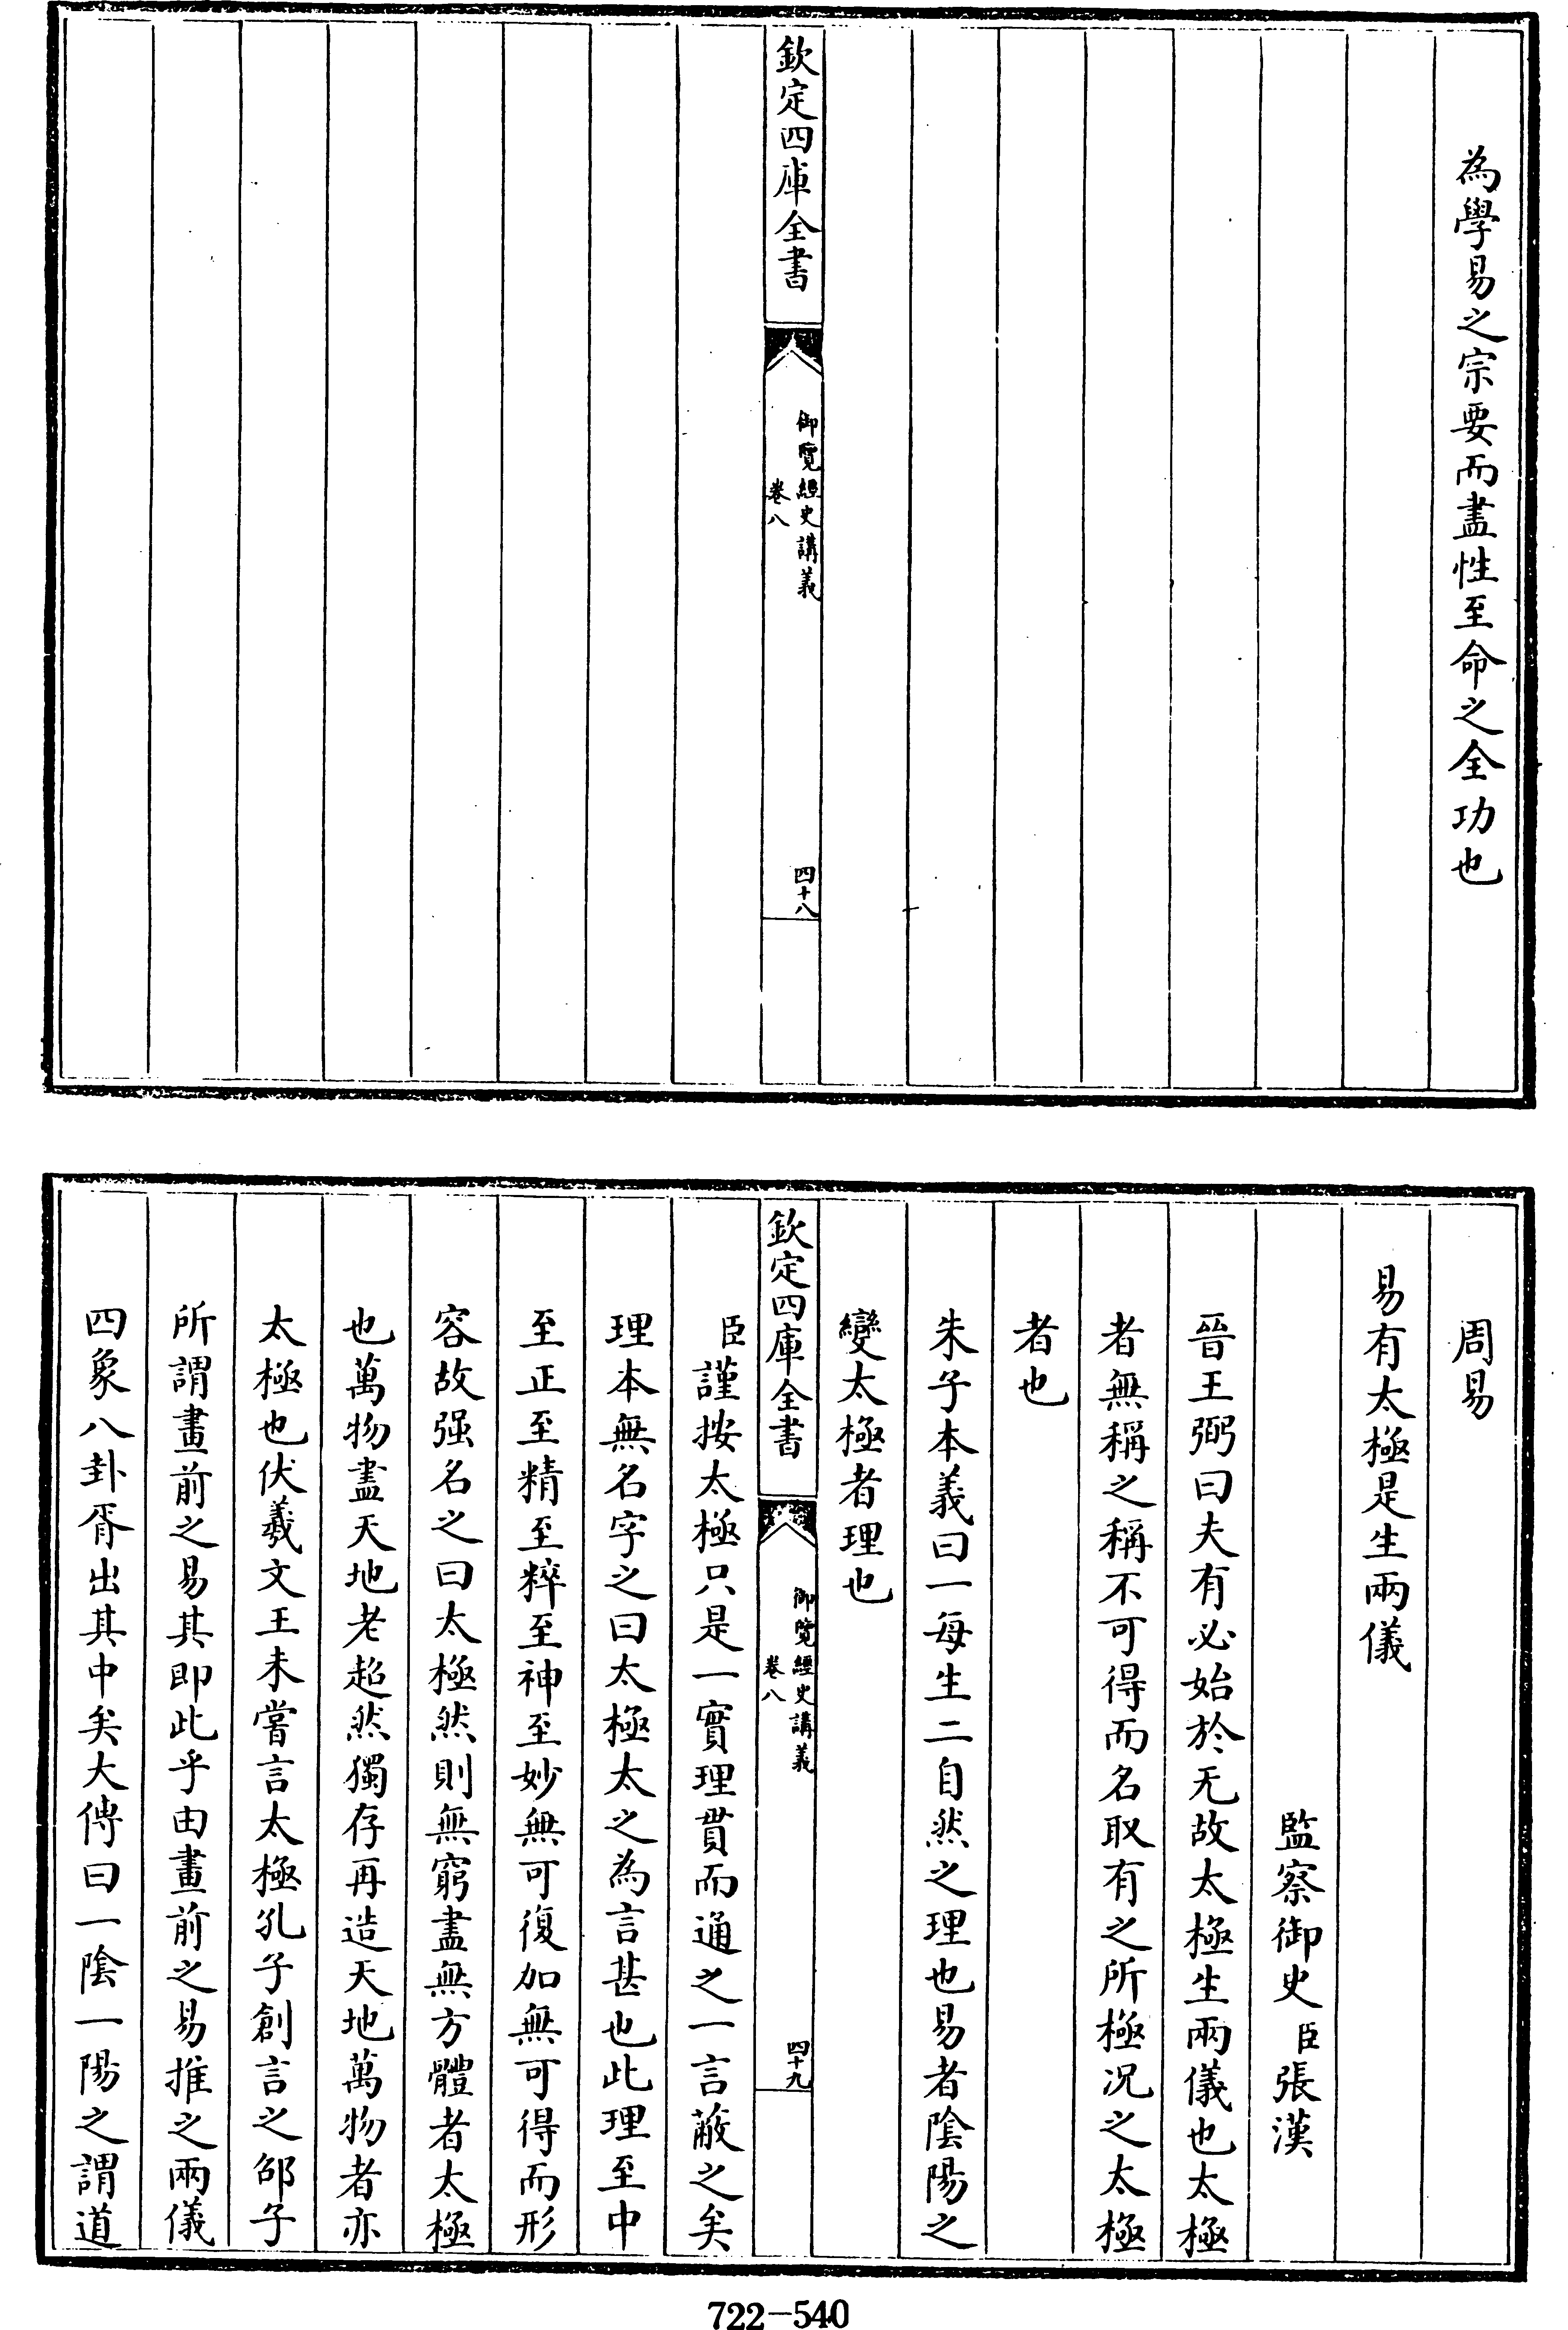 為學易之宗要而盡性至命之全功也
欽定四庫全書
御覽經史講義
卷八
四十八
周易
易有太極是生兩儀
監察御史臣張漢
晉王弼曰夫有必始於无故太極生兩儀也太極
者無稱之稱不可得而名取有之所極况之太極
者也
朱子本義曰一每生二自然之理也易者陰陽之
變太極者理也
欽定四庫全書
御覽經史講義
卷八
四十九
臣謹按太極只是一實理貫而通之一言蔽之矣
理本無名字之曰太極太之為言甚也此理至中
至正至精至粹至神至妙無可復加無可得而形
容故强名之曰太極然則無窮盡無方體者太極
也萬物盡天地老超然獨存再造天地萬物者亦
太極也伏羲文王未嘗言太極孔子創言之邵子
所謂畫前之易其即此乎由畫前之易推之兩儀
四象八卦胥出其中矣大傳曰一陰一陽之謂道
722-540